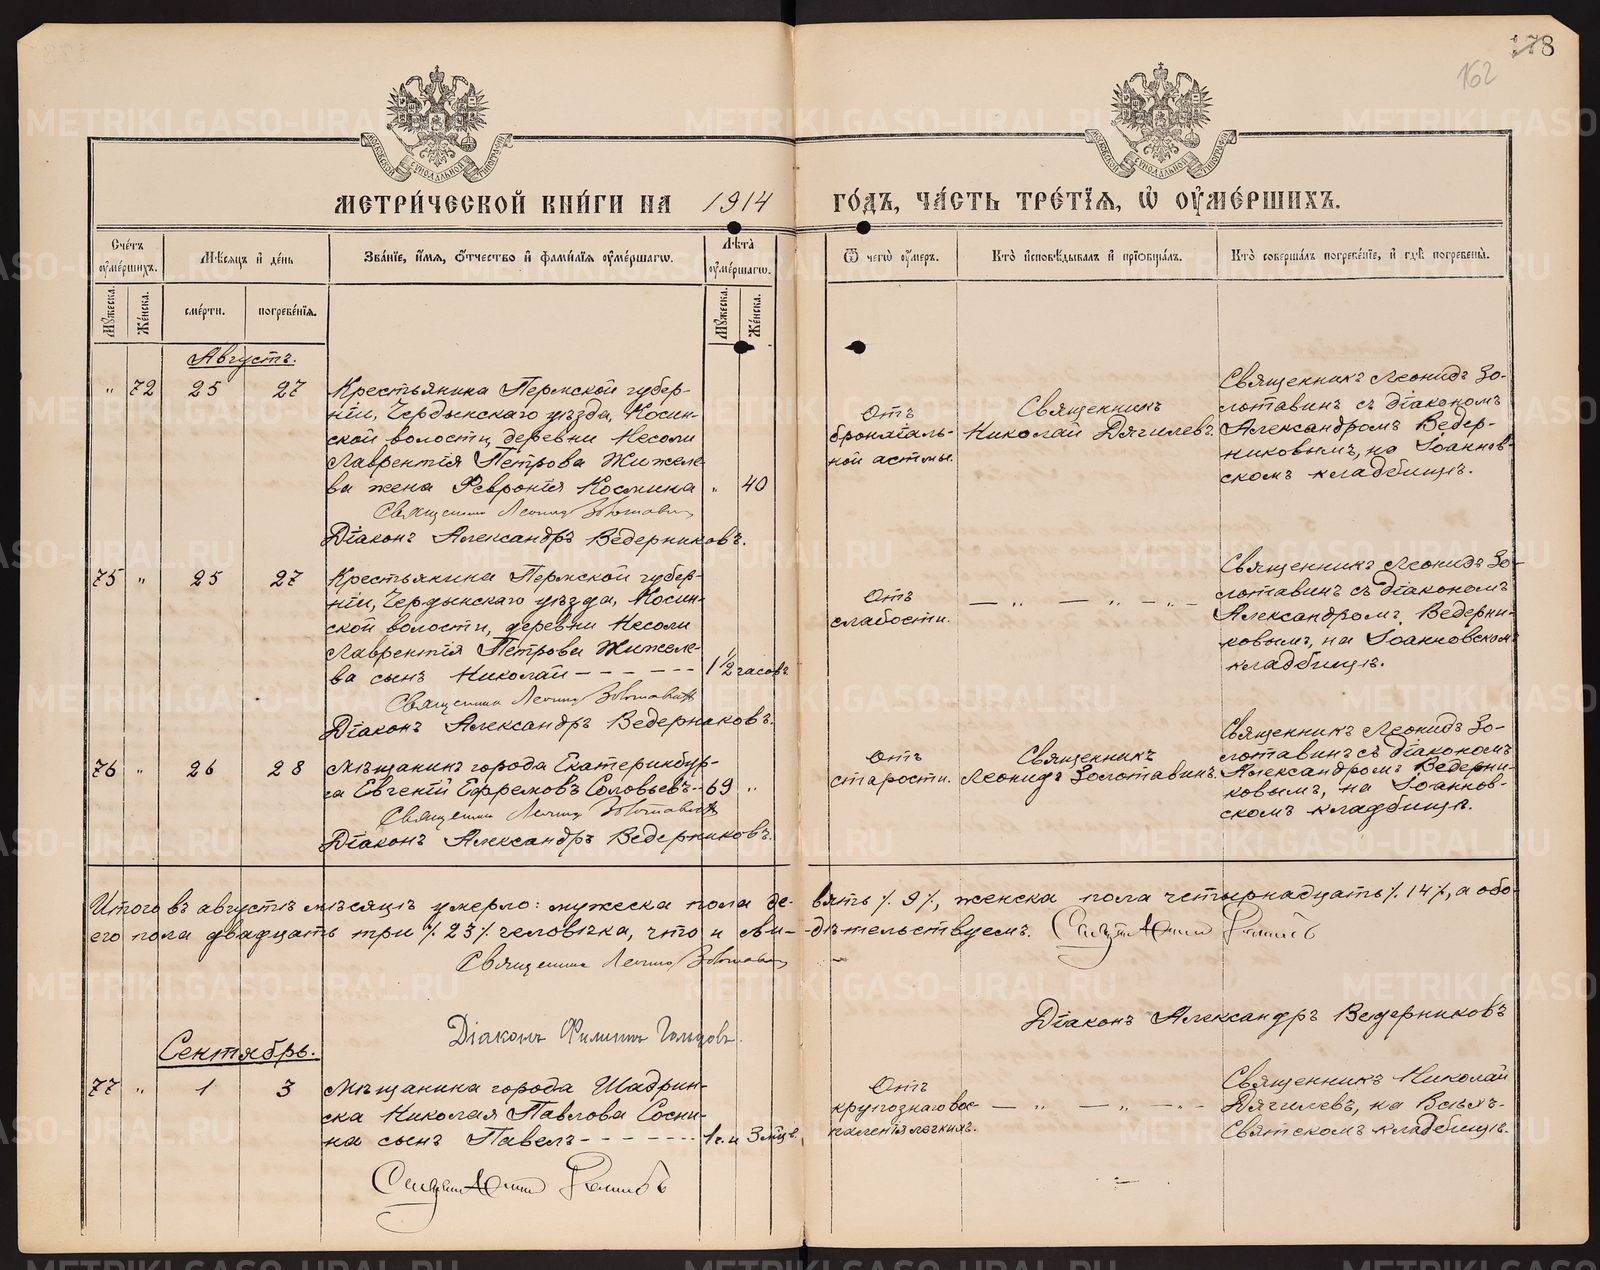 178
162
МЕТРИ́ЧЕСКОЙ КНИ́ГИ НА 1914 ГО́ДЪ, ЧА́СТЬ ТРЕ́ТІѦ, Ѡ҆ ОУ҆МЕ́РШИХЪ.
Сче́тъ оу҆ме́ршихъ.
Мѣ́сѧцъ и҆ де́нь
Зва́нїе, и҆́мѧ, ѻ҆́тчество и҆ фами́лїѧ оу҆ме́ршагѡ.
Лѣ́та оу҆ме́ршагѡ.
Ѿ чегѡ̀ оу҆́меръ.
Кто̀ и҆сповѣ́дывалъ и҆ прїѡбща́лъ.
Кто̀ соверша́лъ погребе́нїе, и҆ гдѣ̀ погребены̀.
Мꙋ́жеска.
Же́нска.
сме́рти.
погребе́нїѧ.
Мꙋ́жеска.
Же́нска.
Августъ.
" 72 25 27
Крестьянина Пермской губер-
ніи, Чердынскаго уѣзда, Косин-
ской волости, деревни Несоли
Лаврентія Петрова Жижеле-
ва жена Ѳевронія Космина " 40
Священникъ Леонидъ Золотавинъ
Діаконъ Александръ Ведерниковъ.
Отъ
бронхіаль-
ной астмы.
Священникъ
Николай Дягилевъ.
Священникъ Леонидъ Зо-
лотавинъ съ діакономъ
Александромъ Ведер-
никовымъ, на Іоаннов-
скомъ кладбищѣ.
75 " 25 27
Крестьянина Пермской губер-
ніи, Чердынскаго уѣзда, Косин-
ской волости, деревни Несоли
Лаврентія Петрова Жижеле-
ва сынъ Николай - - - - - 1 1/2 часовъ
Священникъ Леонидъ Золотавинъ
Діаконъ Александръ Ведерниковъ.
Отъ
слабости.
— " — " — " —
Священникъ Леонидъ Зо-
лотавинъ съ діакономъ
Александромъ Ведерни-
ковымъ, на Іоанновскомъ
кладбищѣ.
76 " 26 28
Мѣщанинъ города Екатеринбур-
га Евгеній Ефремовъ Соловьевъ -- 69 "
Священникъ Леонидъ Золотавинъ
Діаконъ Александръ Ведерниковъ.
Отъ
старости.
Священникъ
Леонидъ Золотавинъ.
Священникъ Леонидъ Зо-
лотавинъ съ діакономъ
Александромъ Ведерни-
ковымъ, на Іоаннов-
скомъ кладбищѣ.
Итого въ августѣ мѣсяцѣ умерло: мужеска пола де-вять /. 9 /., женска пола четырнадцать /. 14 /., а обо-
его пола двадцать три /. 23 /. человѣка, что и сви--дѣтельствуемъ.
Священникъ Леонидъ Золотавинъ
Діаконъ Александръ Ведерниковъ
Діаконъ Филиппъ
Сентябрь.
77 " 1 3
Мѣщанина города Шадрин-
ска Николая Павлова Сосни-
на сынъ Павелъ - - - - - - 1 г. и 3 мѣс.
Отъ
крупознаго вос-
паленія легкихъ.
— " — " — " —
Священникъ Николай
Дягилевъ, на Всѣхъ-
Святскомъ кладбищѣ.
METRIKI.GASO-URAL.RU